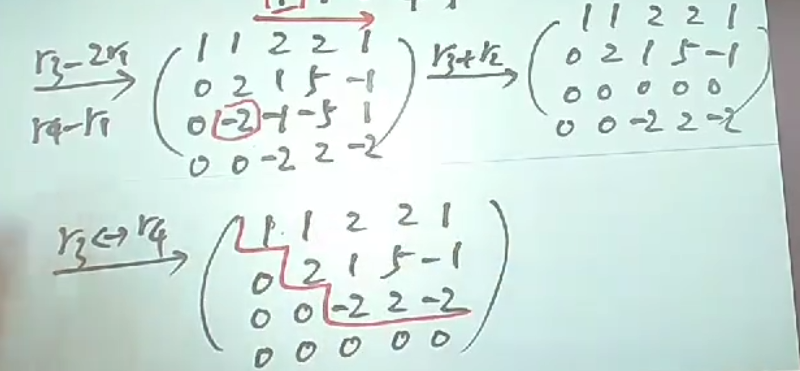 r3-2r1
r4-r1
1 1 2 2 1
0 2 1 5 -1
0 -2 -1 -5 1
0 0 -2 2 -2
r3+r2
1 1 2 2 1
0 2 1 5 -1
0 0 0 0 0
0 0 -2 2 -2
r3↔r4
1 1 2 2 1
0 2 1 5 -1
0 0 -2 2 -2
0 0 0 0 0